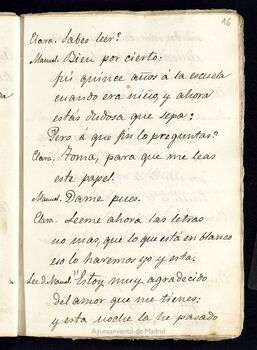 16
Clara. Sabes leer?
Manuel. Bien por cierto:
fuí quince años á la escuela
cuando era niño, y ahora
estás dudosa que sepa?
Pero á que fin lo preguntas?
Clara. Toma, para que me leas
este papel.
Manuel. Dame pues.
Clara. Leeme ahora las letras
no mas, que lo que está en blanco
lo haremos yo y esta.
Lee D. Manuel. "Estoy muy agradecido
del amor que me tienes:
y esta noche la he pasado
Ayuntamiento de Madrid